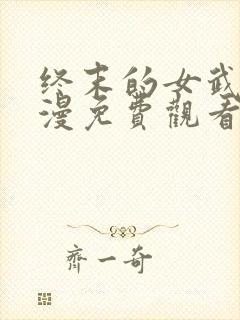 終末的女武
漫免費觀看
齊一奇